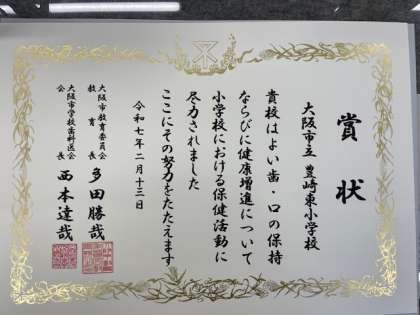 賞状
大阪市立 豊崎東小学校
貴校はよい歯・口の保持
ならびに健康増進について
小学校における保健活動に
尽力されました
ここにその努力をたたえます
令和七年二月十三日
大阪市教育委員会
教育長 多田勝哉
大阪市学校歯科医会
会長 西本達哉